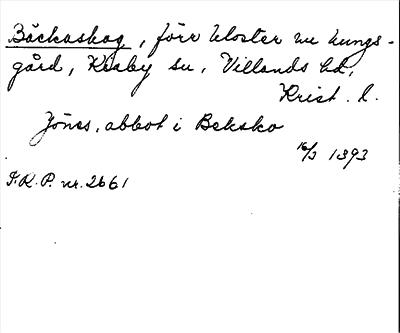 Bäckaskog, förr kloster nu kungs-
gård, Kiaby sn, Villands hd,
Krist. l.
Jönes, abbot i Beksko
16/3 1393
F.R.P. nr. 2661